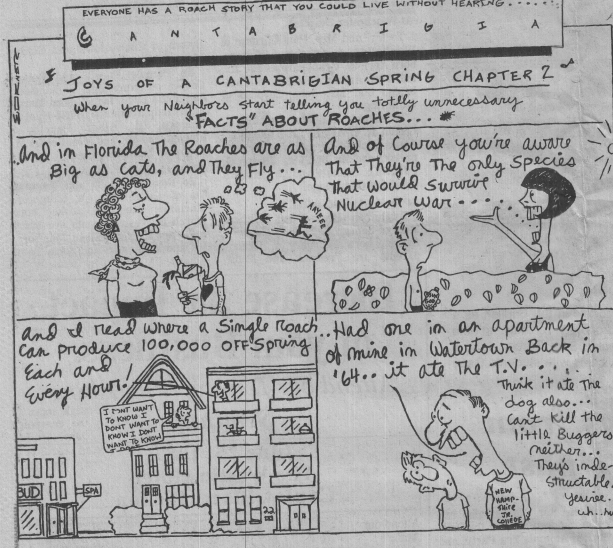 EVERYONE HAS A ROACH STORY THAT YOU COULD LIVE WITHOUT HEARING......
CANTABRIGIA
JOYS OF A CANTABRIGIAN SPRING CHAPTER 2
When your Neighbors Start telling you totlly unnecessary
"FACTS" ABOUT ROACHES...
..And in Florida The Roaches are as
Big as Cats, and They Fly...
And of Course you're aware
That They're The only Species
That would Survive
Nuclear War....
and I read where a Single roach
Can produce 100,000 OFFSpring
Each and
Every Hour!
I DON'T WANT
TO KNOW I
DONT WANT TO
KNOW I DONT
WANT TO KNOW
BUD
SPA
22
..Had one in an apartment
of mine in Watertown Back in
'64.. it ate The T.V.....
Think it ate The
dog also...
Cant Kill the
little Buggers
neither...
They's inde-
Structable.
Yesiree.
NEW
HAMP-
Shire
JR.
COLLEGE